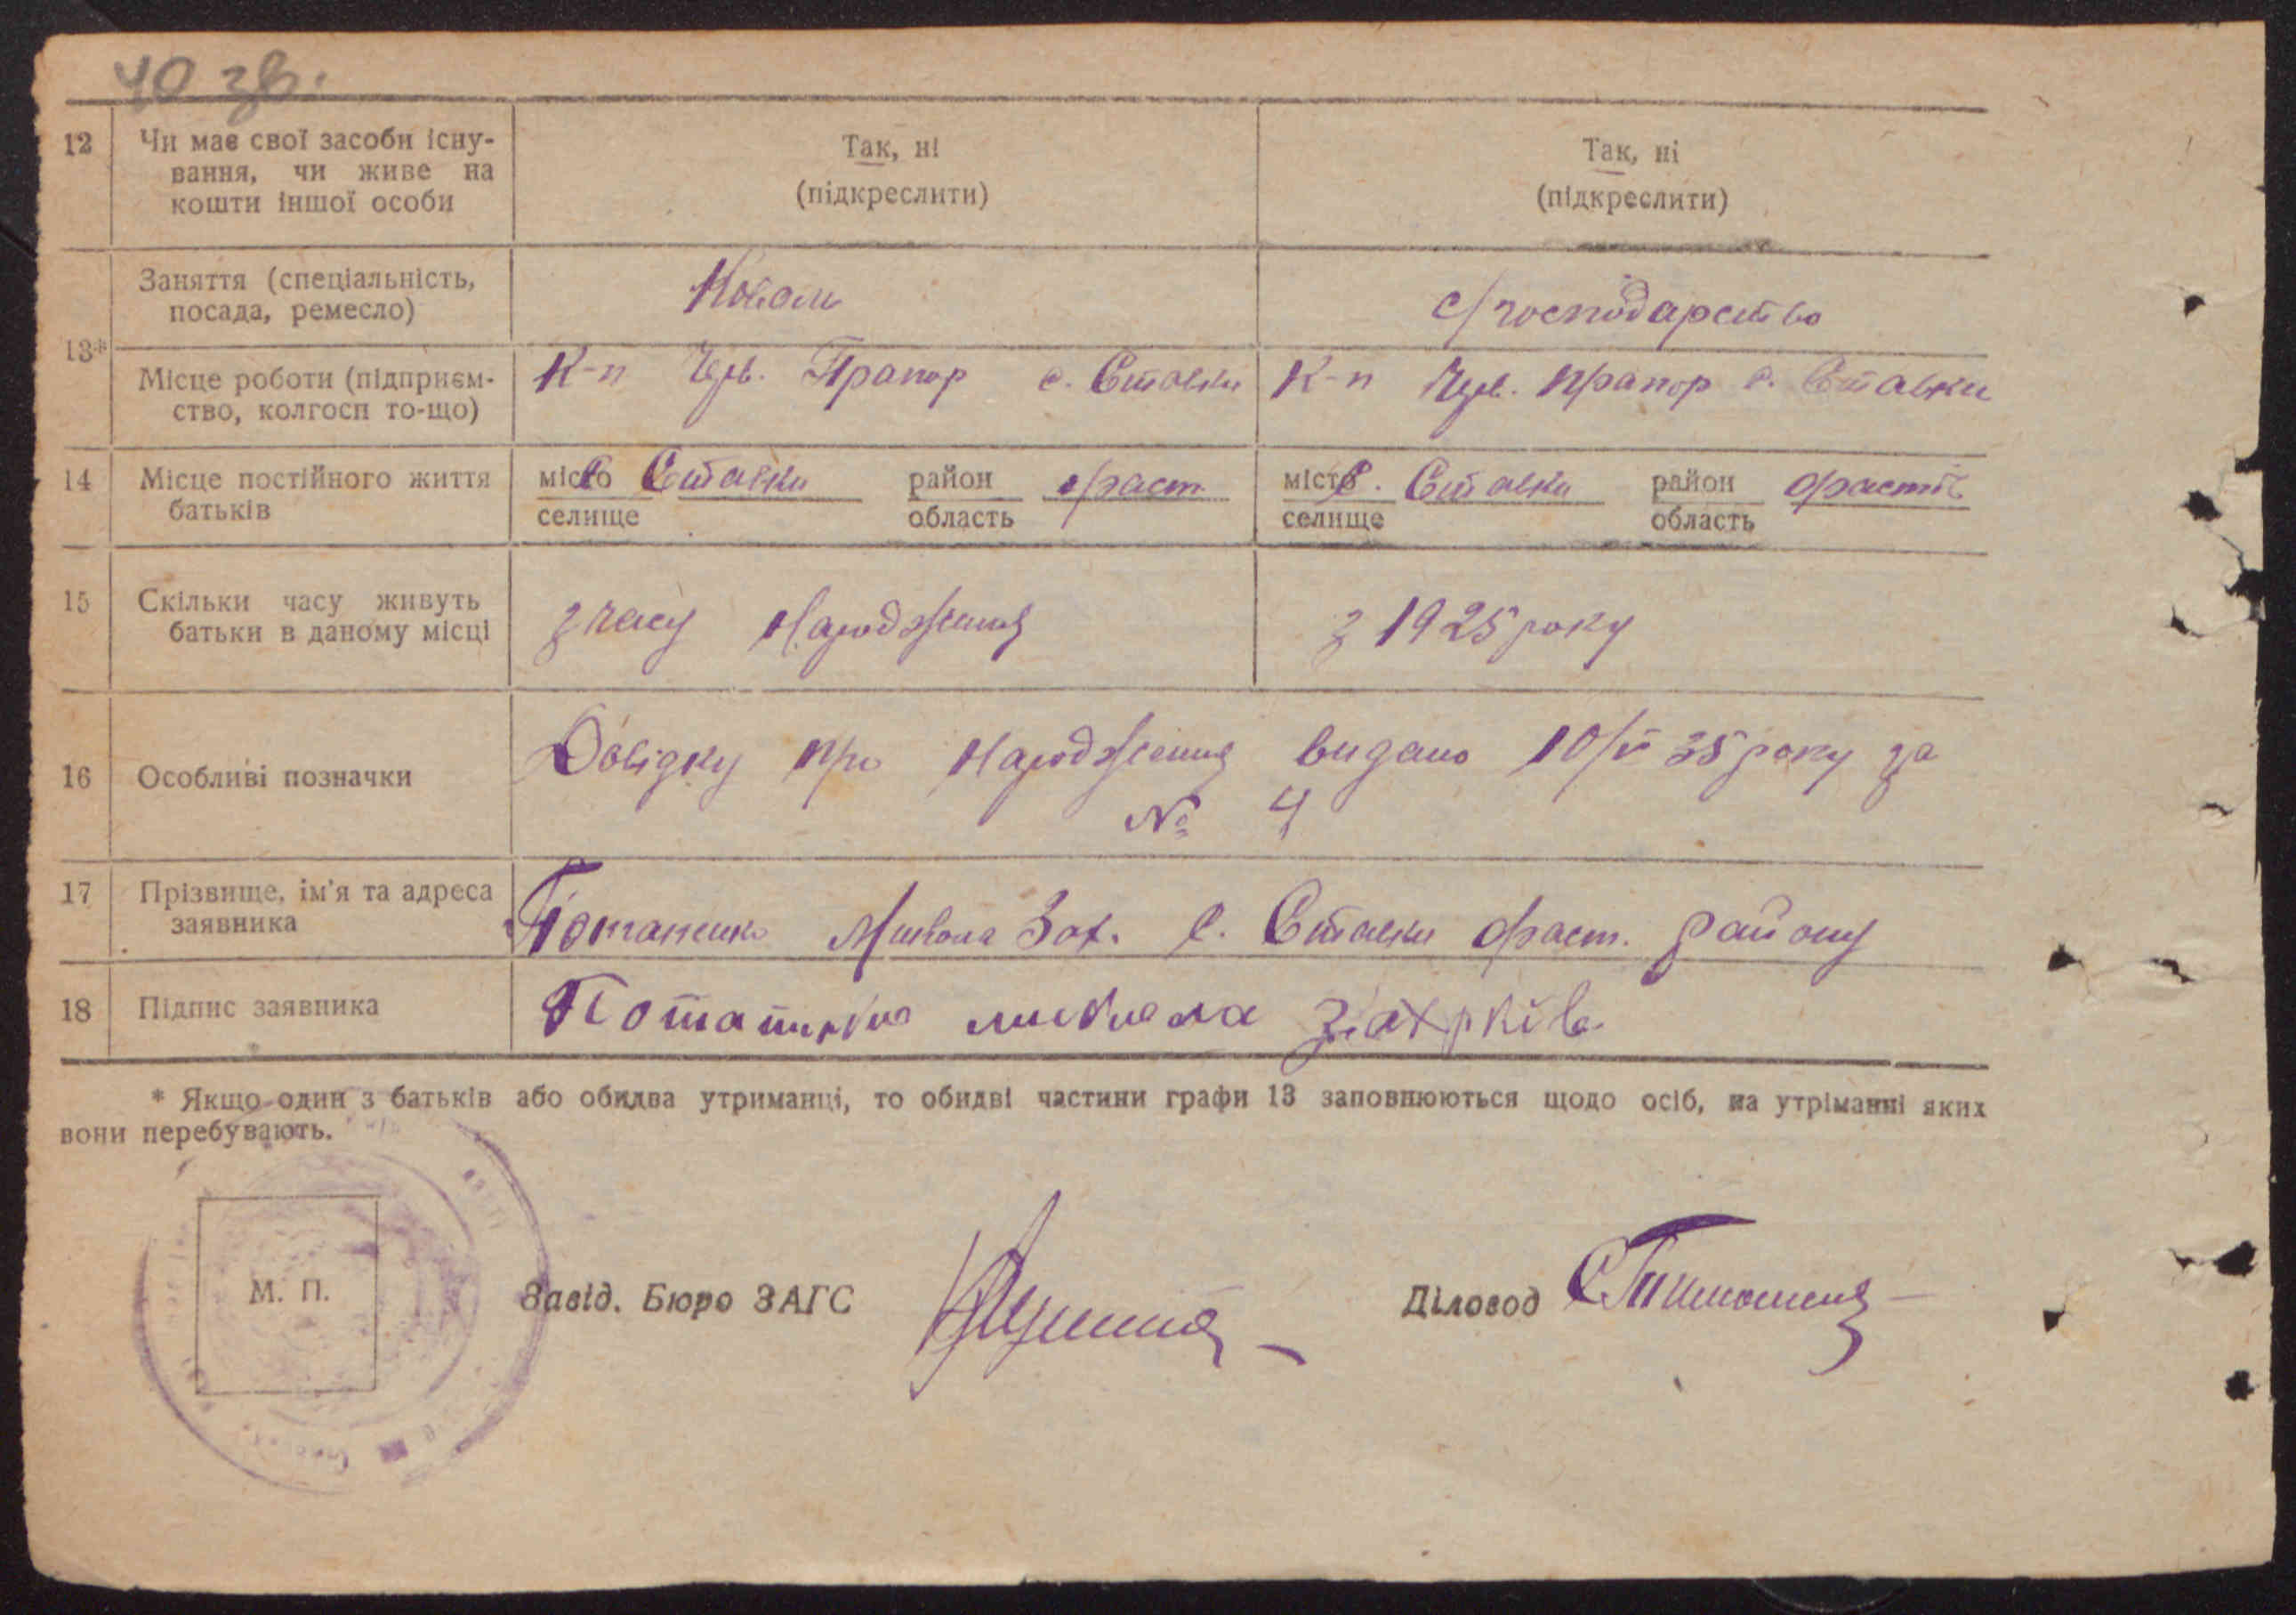 40 зв.
12 Чи має свої засоби існу- Так, ні Так, ні
вання, чи живе на (підкреслити) (підкреслити)
кошти іншої особи
Заняття (спеціальність, Коваль с/господарство
посада, ремесло)
13*
Місце роботи (підприєм- К-п Черв. Прапор с. Ставки К-п Черв. прапор с. Ставки
ство, колгосп то-що)
14 Місце постійного життя місто с. Ставки район фаст. місто с. Ставки район фастів
батьків селище область селище область
15 Скільки часу живуть з часу народження з 1925 року
батьки в даному місці
16 Особливі позначки Довідку про народження видано 10/V 35 року за
№ 4
17 Прізвище, ім'я та адреса Потапенко Микола Зах. с. Ставки фаст. району
заявника
18 Підпис заявника
* Якщо один з батьків або обидва утриманці, то обидві частини графи 13 заповнюються щодо осіб, на утріманні яких
вони перебувають.
М. П. Завід. Бюро ЗАГС Діловод